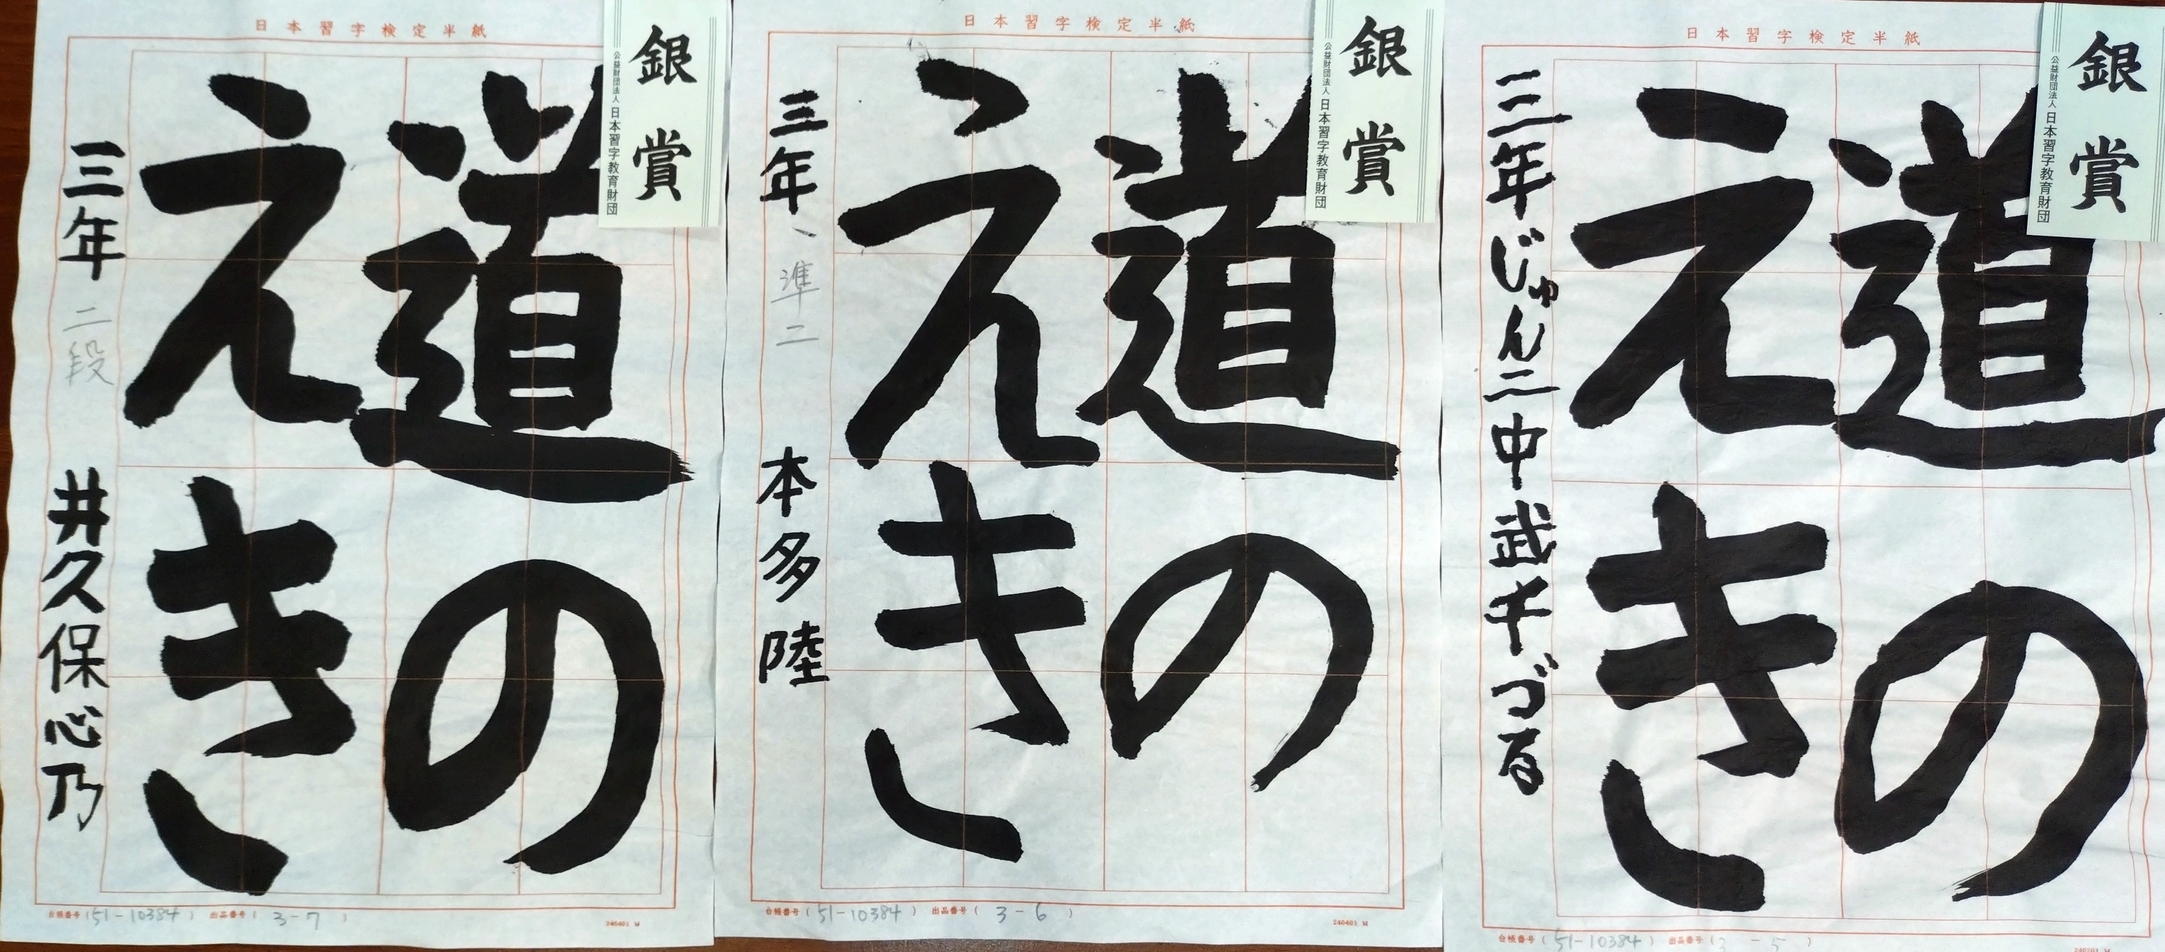 日本習字検定半紙
銀賞
公益財団法人 日本習字教育財団
道の
えき
三年 二段 井久保心乃
台帳番号 (51-10384) 出品番号 (3-7)
240401 M
日本習字検定半紙
銀賞
公益財団法人 日本習字教育財団
道の
えき
三年、準二 本多陸
台帳番号 (51-10384) 出品番号 (3-6)
240401 M
日本習字検定半紙
銀賞
公益財団法人 日本習字教育財団
道の
えき
三年じゅん二中武千づる
台帳番号 (51-10384) 出品番号 (3-5)